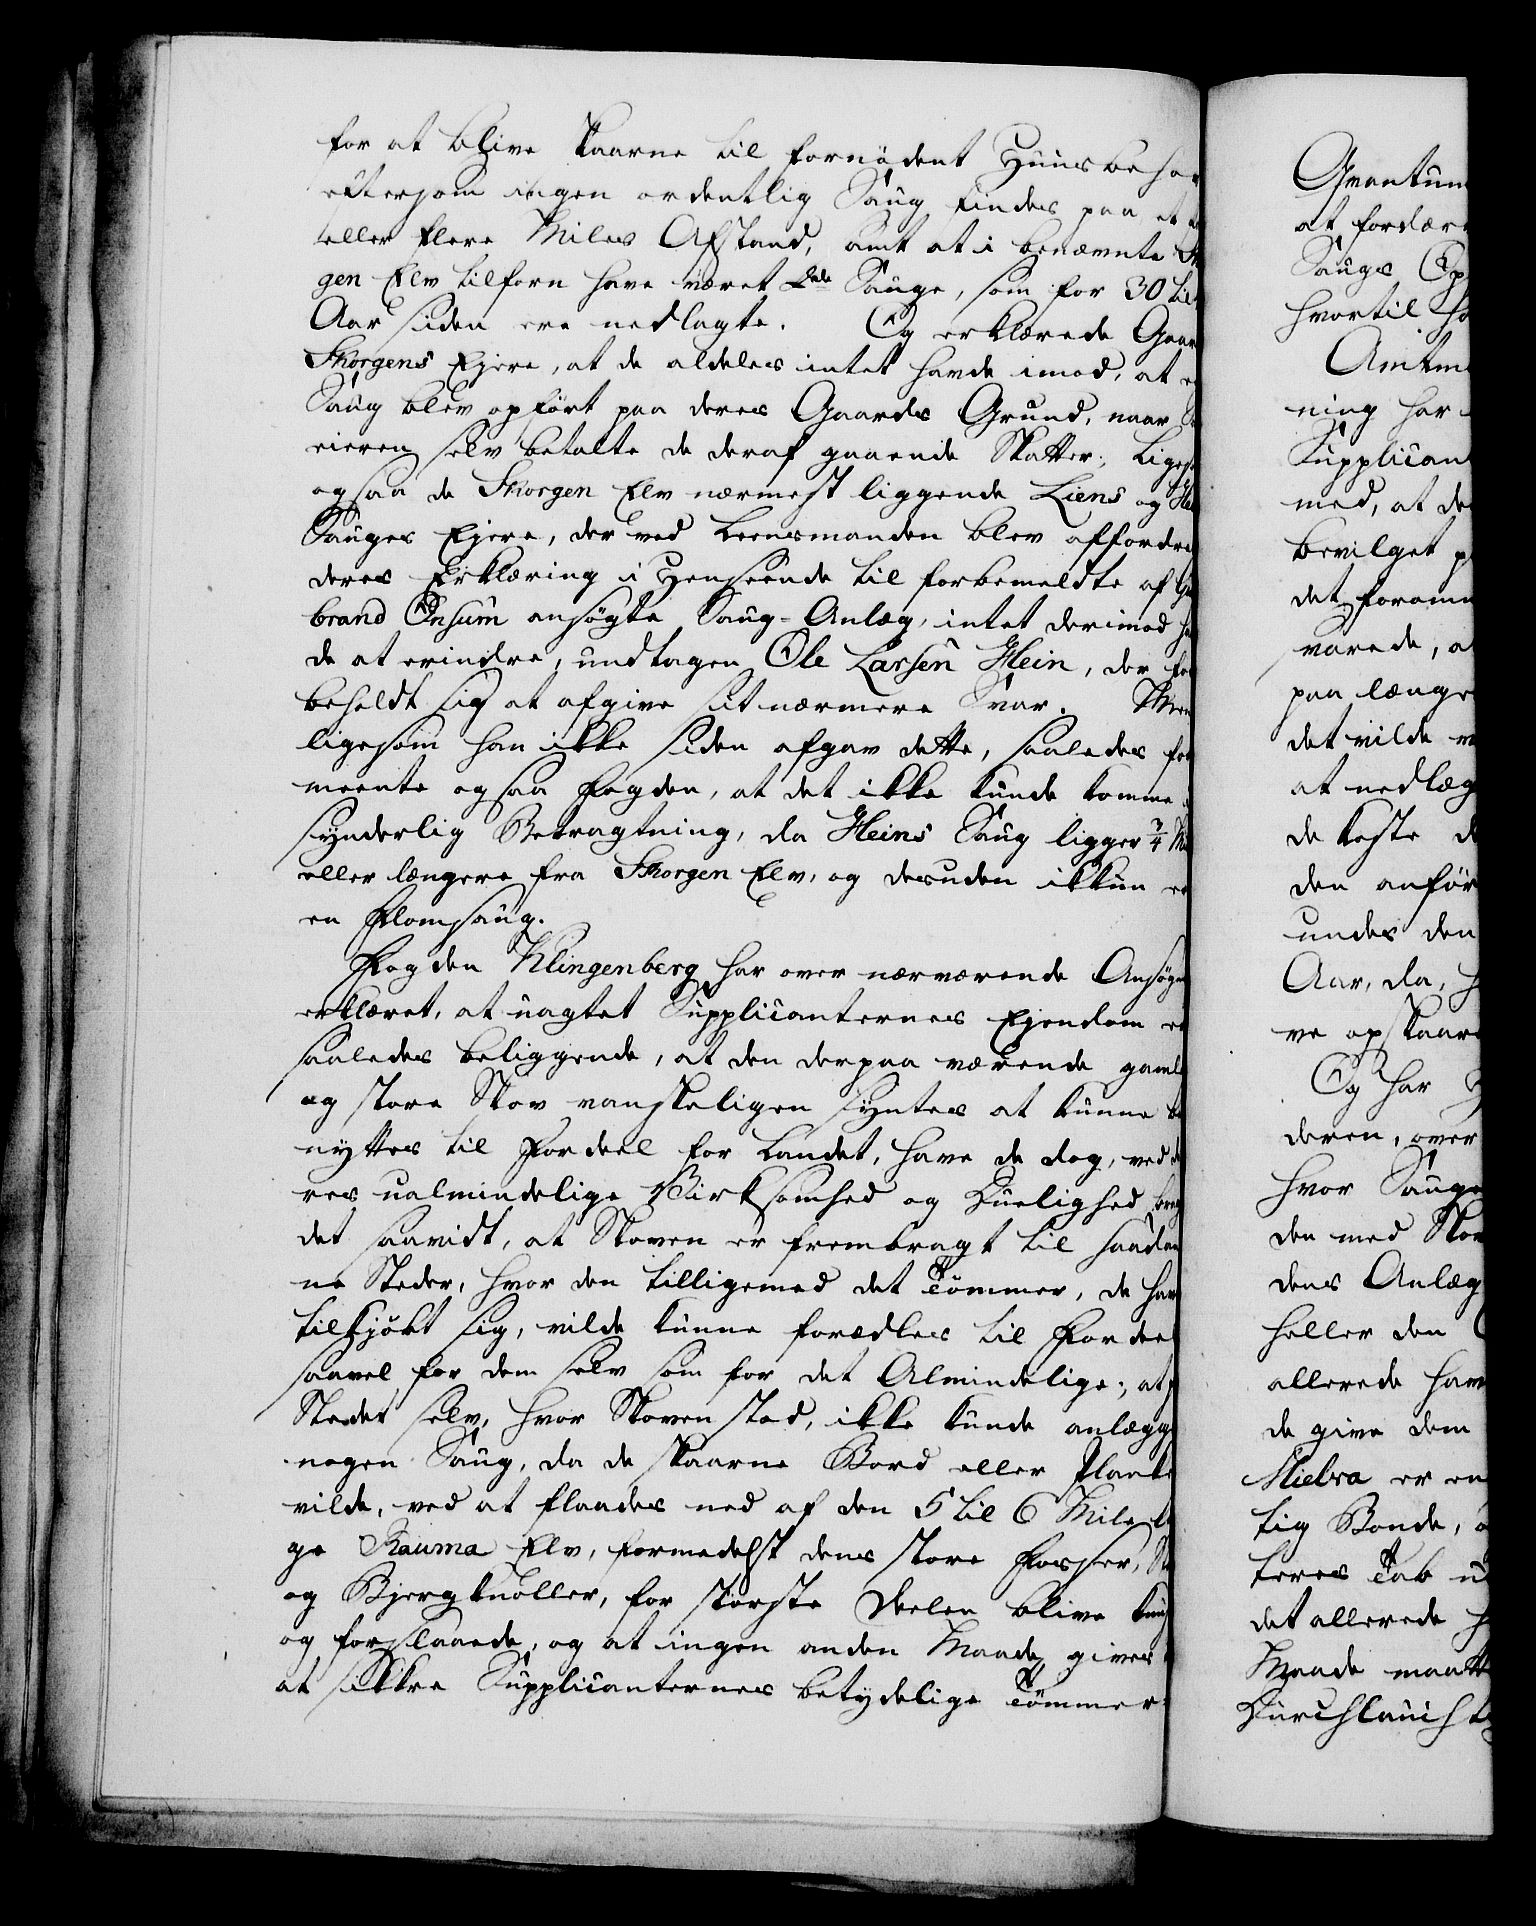 for at blive skaarne til fornødent Huusbehov
eftersom ingen ordentlig Saug findes paa et
eller flere Miles Afstand, samt at i benævnte Sk
gen Elv tilforn have været 2de Sauge, som for 30 til
Aar siden ere nedlagte. Og erklærede Gaar
Skorgens Ejere, at de aldeles intet havde imod, at e
Saug blev opført paa deres Gaards Grund, naar
eieren selv betalte de deraf gaaende Skatter; ligesaa
ogsaa de Skorgen Elv nærmest liggende Liens og Hei
Sauges Ejere, der ved Leensmanden blev affordre
deres Erklæring i Henseende til forbemeldte af Gul
brand Onsum ansøgte Saug-Anlæg, intet derimod ha
de at erindre, undtagen Ole Larsen Hein, der for
beholdt sig at afgive sit nærmere Svar. Men
ligesom han ikke siden afgav dette, saaledes for
meente ogsaa Fogden, at det ikke kunde komme i
synderlig Betragtning, da Heins Saug ligger 3/4 Mi
eller længere fra Skorgen Elv, og desuden ikkun er
en Flomsaug.
Fogden Klingenberg har over nærværende Ansøgn
erklæret, at uagtet Supplicanternes Ejendom er
saaledes beliggende, at den derpaa værende gaml
og store Skov vanskeligen syntes at kunne be
nyttes til Fordeel for Landet, have de dog, ved de
res ualmindelige Virksomhed og Duelighed brag
det saavidt, at Skoven er frembragt til saadan
ne Steder, hvor den tilligemed det Tømmer, de hav
tilkjøbt sig, vilde kunne forædles til Fordeel
saavel for dem selv som for det Almindelige; at p
Stedet selv, hvor Skoven stod, ikke kunde anlægge
nogen Saug, da de skaarne Bord eller Planke
vilde, ved at flaades ned af den 5 til 6 Mile la
ge Rauma Elv, formedelst dens store Fosser, St
og Bjergknoller, for største Deelen blive knus
og forslaaede, og at ingen anden Maade gives
at sikkre Supplicanternes betydelige Tømmer-
Qvantum
at fordærv
Saugs Op
hvortil ha
Amtma
ning har
Supplican
med, at de
bevilget p
det foromm
varede, a
paa længe
det vilde v
at nedlæg
de koste d
den anfør
undes den
Aar, da, h
ve opskaar
Og har
deren, over
hvor Sauge
den med Skov
dens Anlæg
heller den
allerede hav
de give dem
Mielva er en
tig Bonde, o
teres Tab u
det allerede h
Maade maatt
Durchlauicht